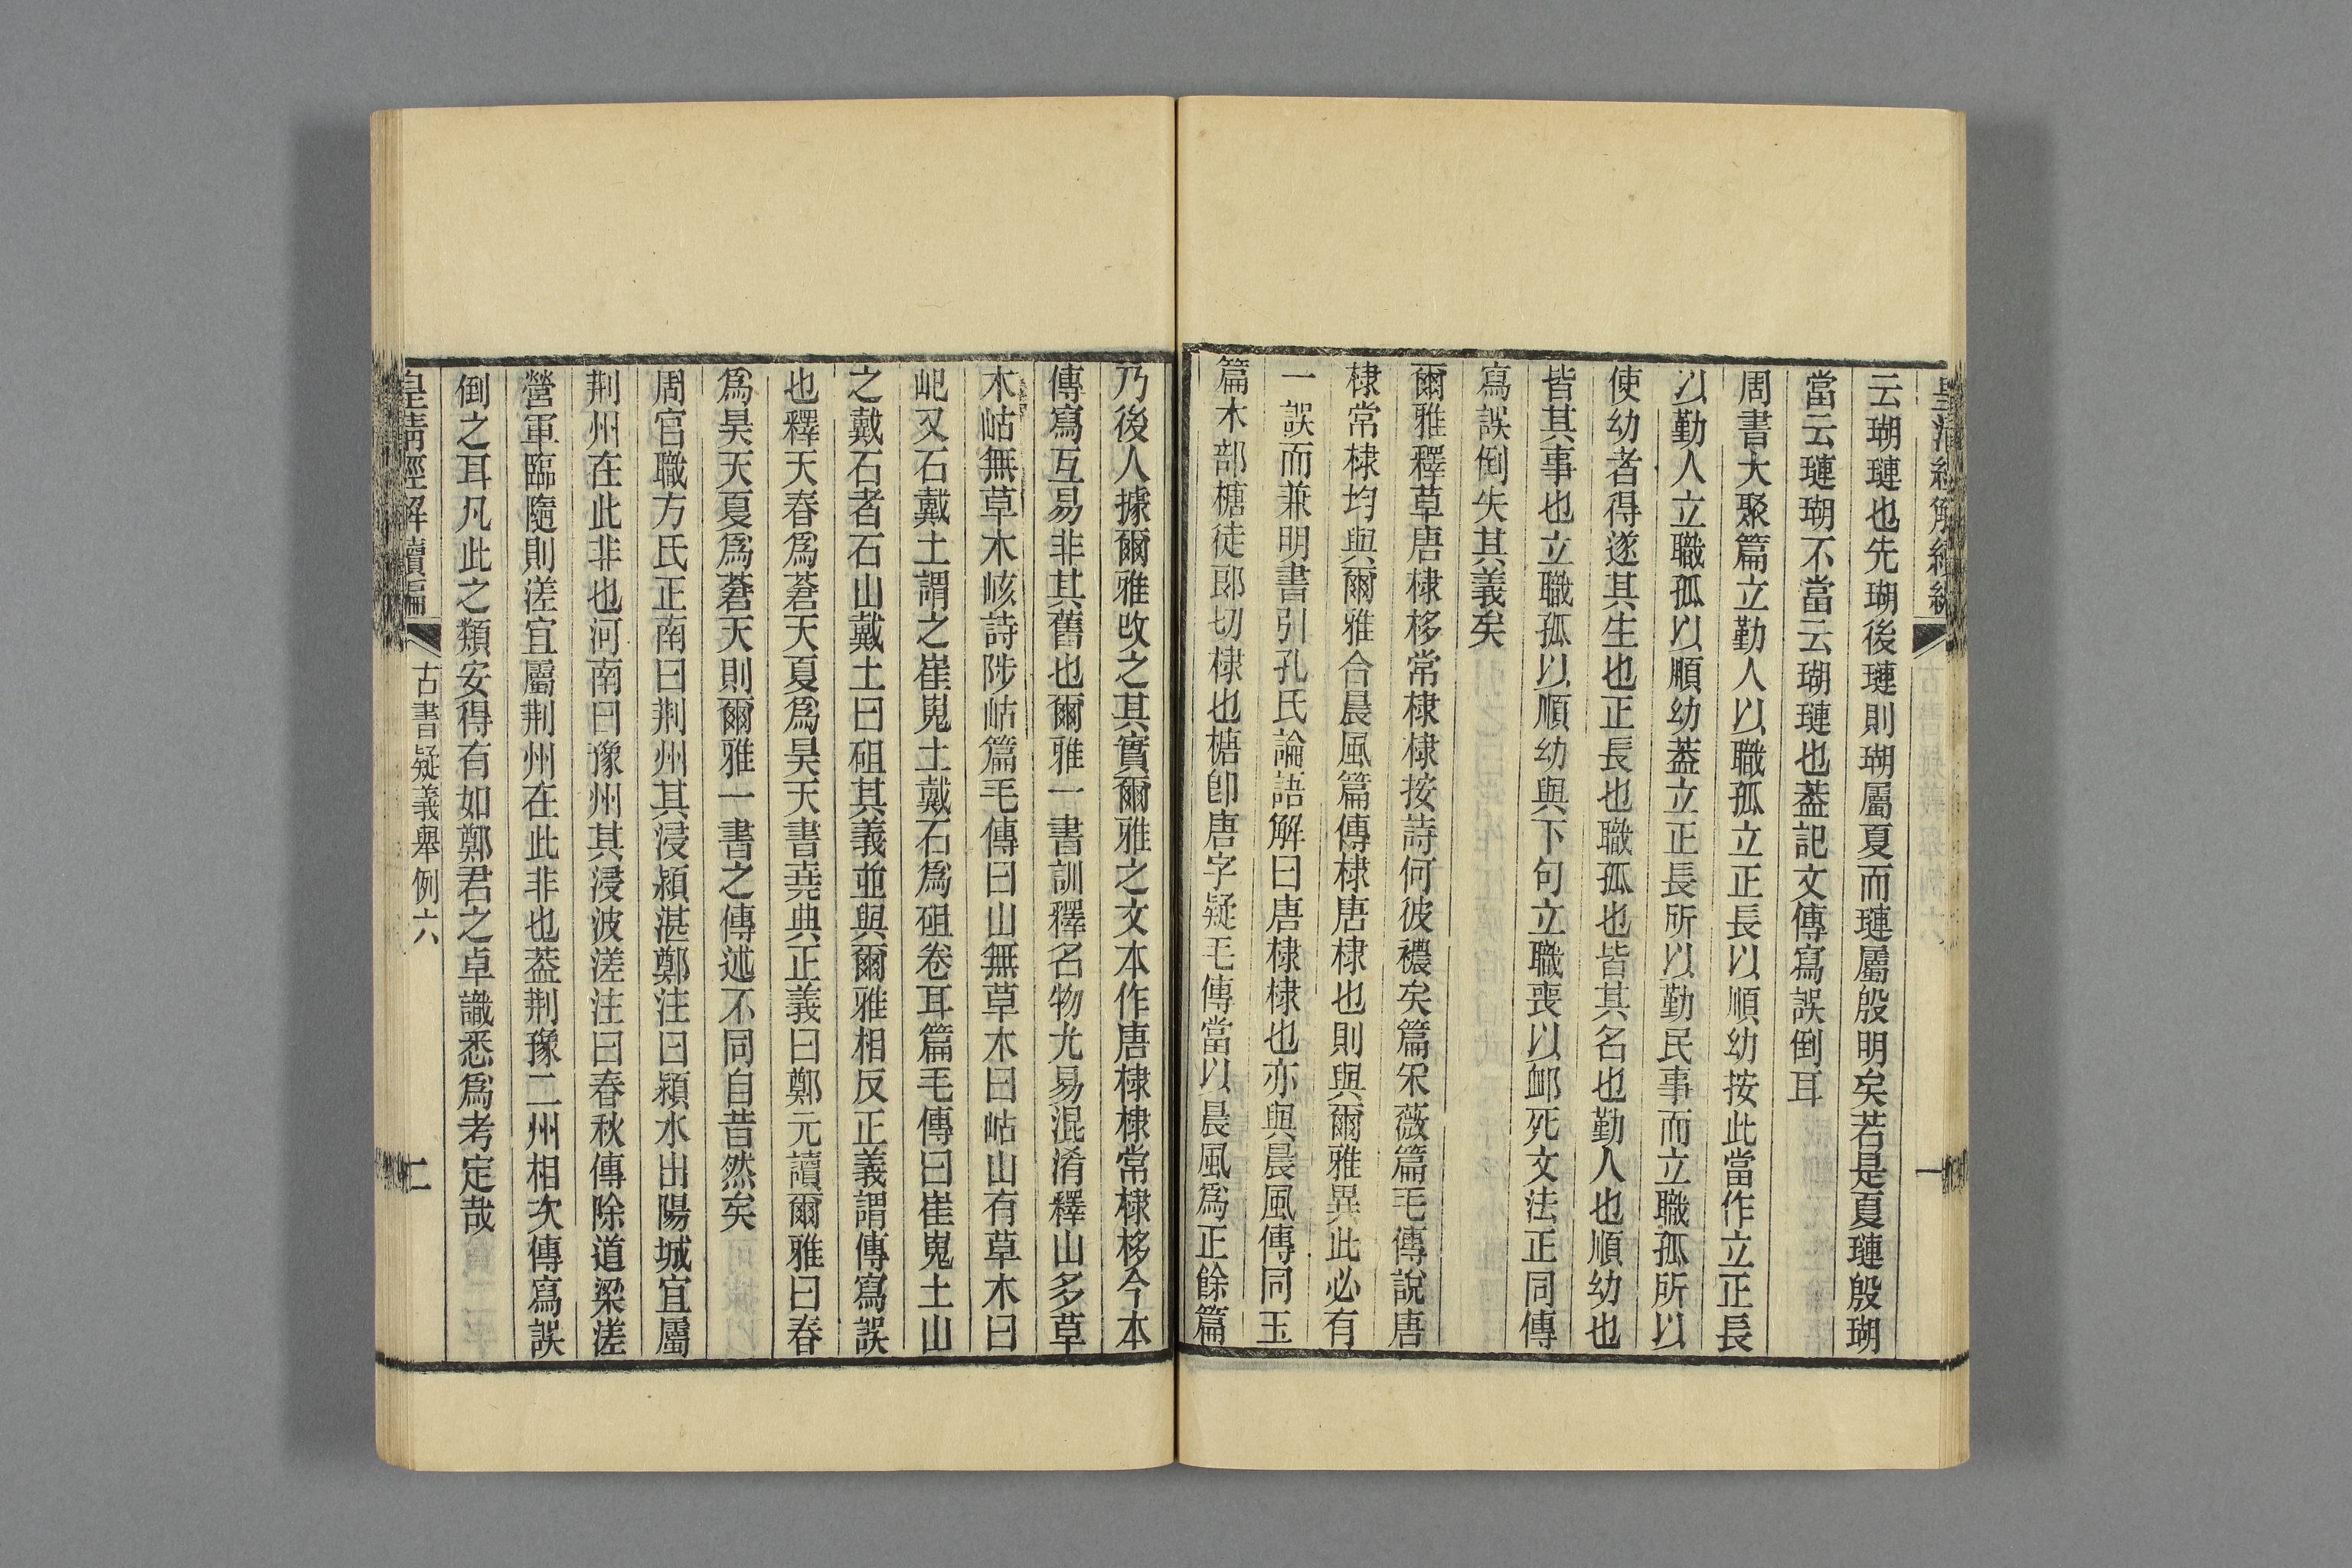 云瑚璉也先瑚後璉則瑚屬夏而璉屬殷明矣若是夏璉殷瑚
當云璉瑚不當云瑚璉也葢記文傳寫誤倒耳
周書大聚篇立勤人以職孤立正長以順幼按此當作立正長
以勤人立職孤以順幼葢立正長所以勤民事而立職孤所以
使幼者得遂其生也正長也職孤也皆其名也勤人也順幼也
皆其事也立職孤以順幼與下句立職喪以䘏死文法正同傳
寫誤倒失其義矣
爾雅釋草唐棣栘常棣棣按詩何彼襛矣篇采薇篇毛傳說唐
棣常棣均與爾雅合晨風篇傳棣唐棣也則與爾雅異此必有
一誤而兼明書引孔氏論語解曰唐棣棣也亦與晨風傳同玉
篇木部榶徒郎切棣也榶卽唐字疑毛傳當以晨風爲正餘篇
乃後人據爾雅改之其實爾雅之文本作唐棣棣常棣栘今本
傳寫互易非其舊也爾雅一書訓釋名物尤易混淆釋山多草
木岵無草木峐詩陟岵篇毛傳曰山無草木曰岵山有草木曰
屺又石戴土謂之崔嵬土戴石爲砠卷耳篇毛傳曰崔嵬土山
之戴石者石山戴土曰砠其義竝與爾雅相反正義謂傳寫誤
也釋天春爲蒼天夏爲昊天書堯典正義曰鄭元讀爾雅曰春
爲昊天夏爲蒼天則爾雅一書之傳述不同自昔然矣
周官職方氏正南曰荆州其浸潁湛鄭注曰潁水出陽城宜屬
荆州在此非也河南曰豫州其浸波溠注曰春秋傳除道梁溠
營軍臨隨則溠宜屬荆州在此非也葢荆豫二州相次傳寫誤
倒之耳凡此之類安得有如鄭君之卓識悉爲考定哉
皇清經解續編 古書疑義舉例六 二